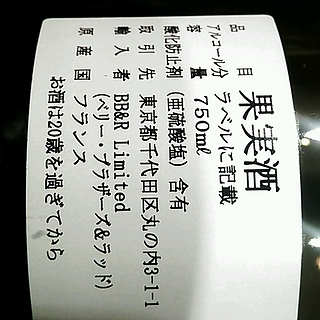 品目 果実酒
アルコール分 ラベルに記載
容量 750ml
酸化防止剤 (亜硫酸塩) 含有
取引先 東京都千代田区丸の内3-1-1
輸入者 BB&R Limited
(ベリー・ブラザーズ&ラッド)
原産国 フランス
お酒は20歳を過ぎてから